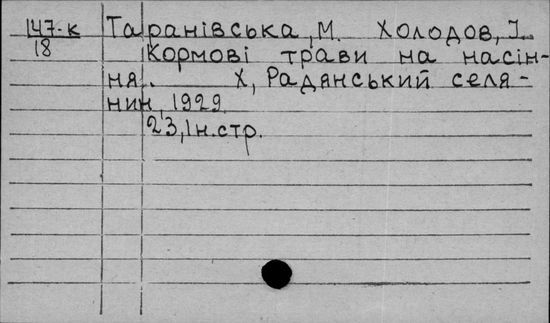 147-к Таранівська, М. Холодов, І.
18 Кормові трави на насін-
ня. Х, Радянський селя-
нин, 1929
23, 1 н. стр.